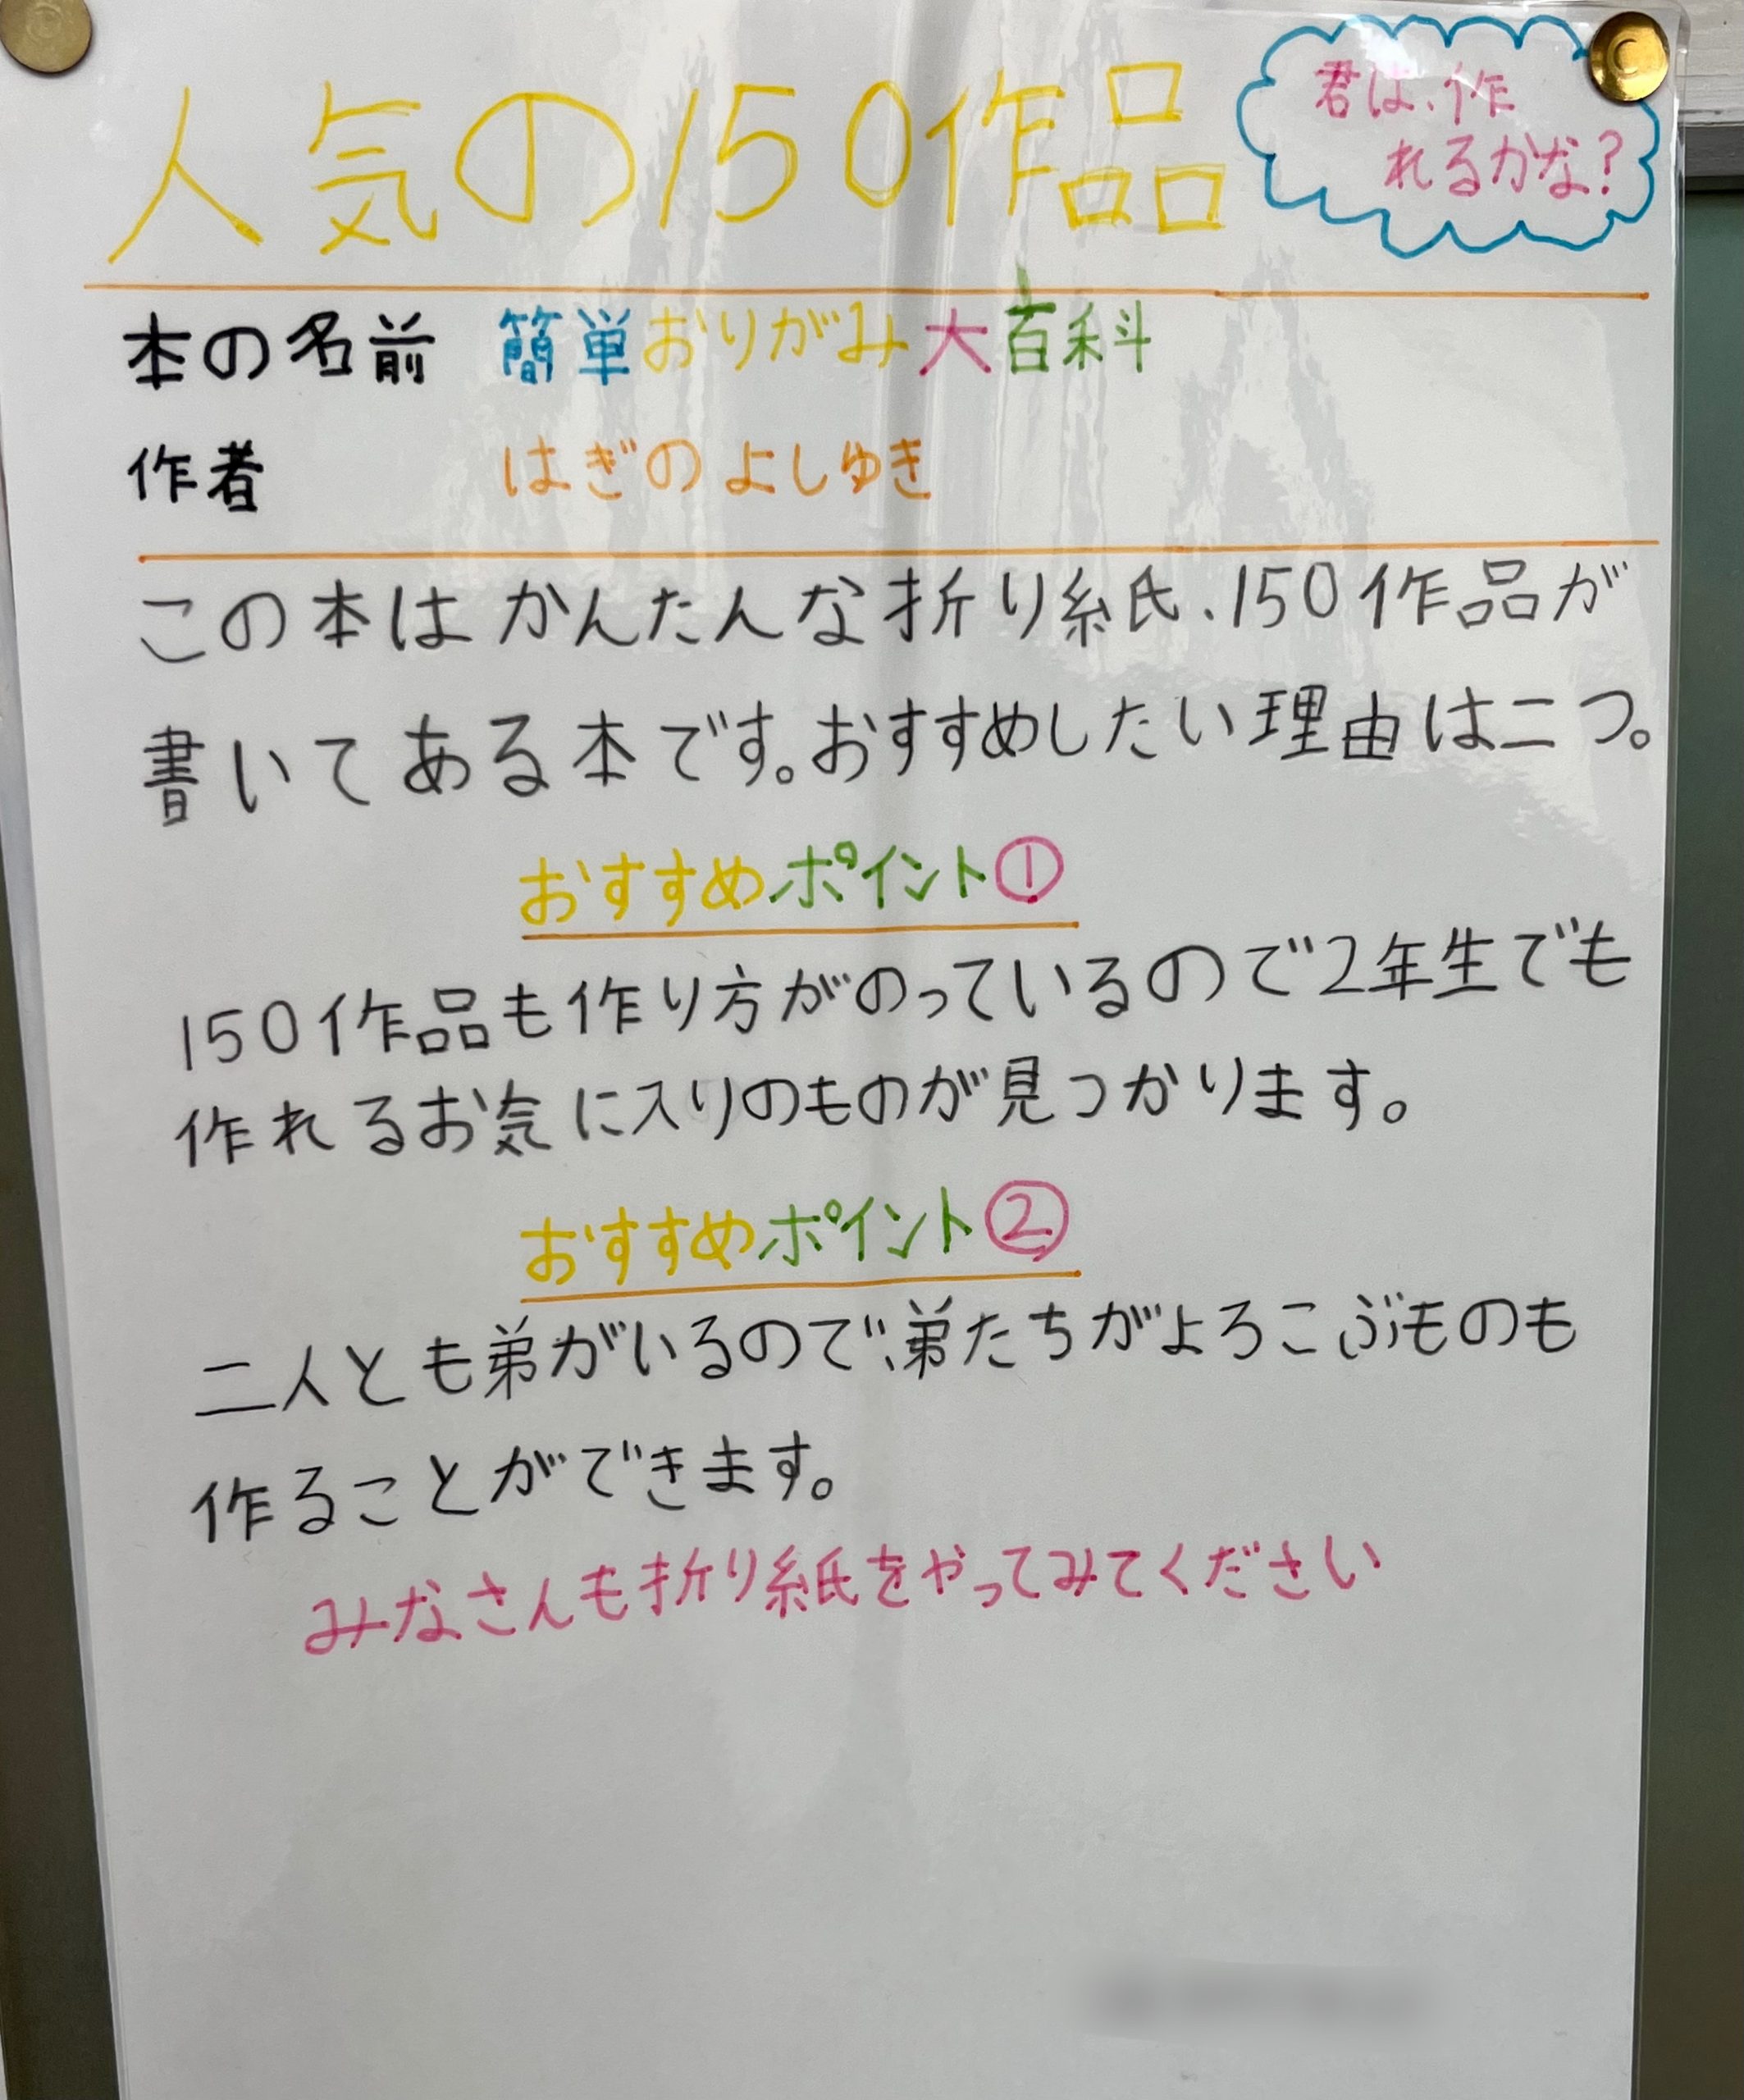 人気の150作品
君は、作
れるかな?
本の名前 簡単おりがみ大百科
作者 はぎのよしゆき
この本はかんたんな折り紙、150作品が
書いてある本です。おすすめしたい理由は二つ。
おすすめポイント①
150作品も作り方がのっているので2年生でも
作れるお気に入りのものが見つかります。
おすすめポイント②
二人とも弟がいるので、弟たちがよろこぶものも
作ることができます。
みなさんも折り紙をやってみてください